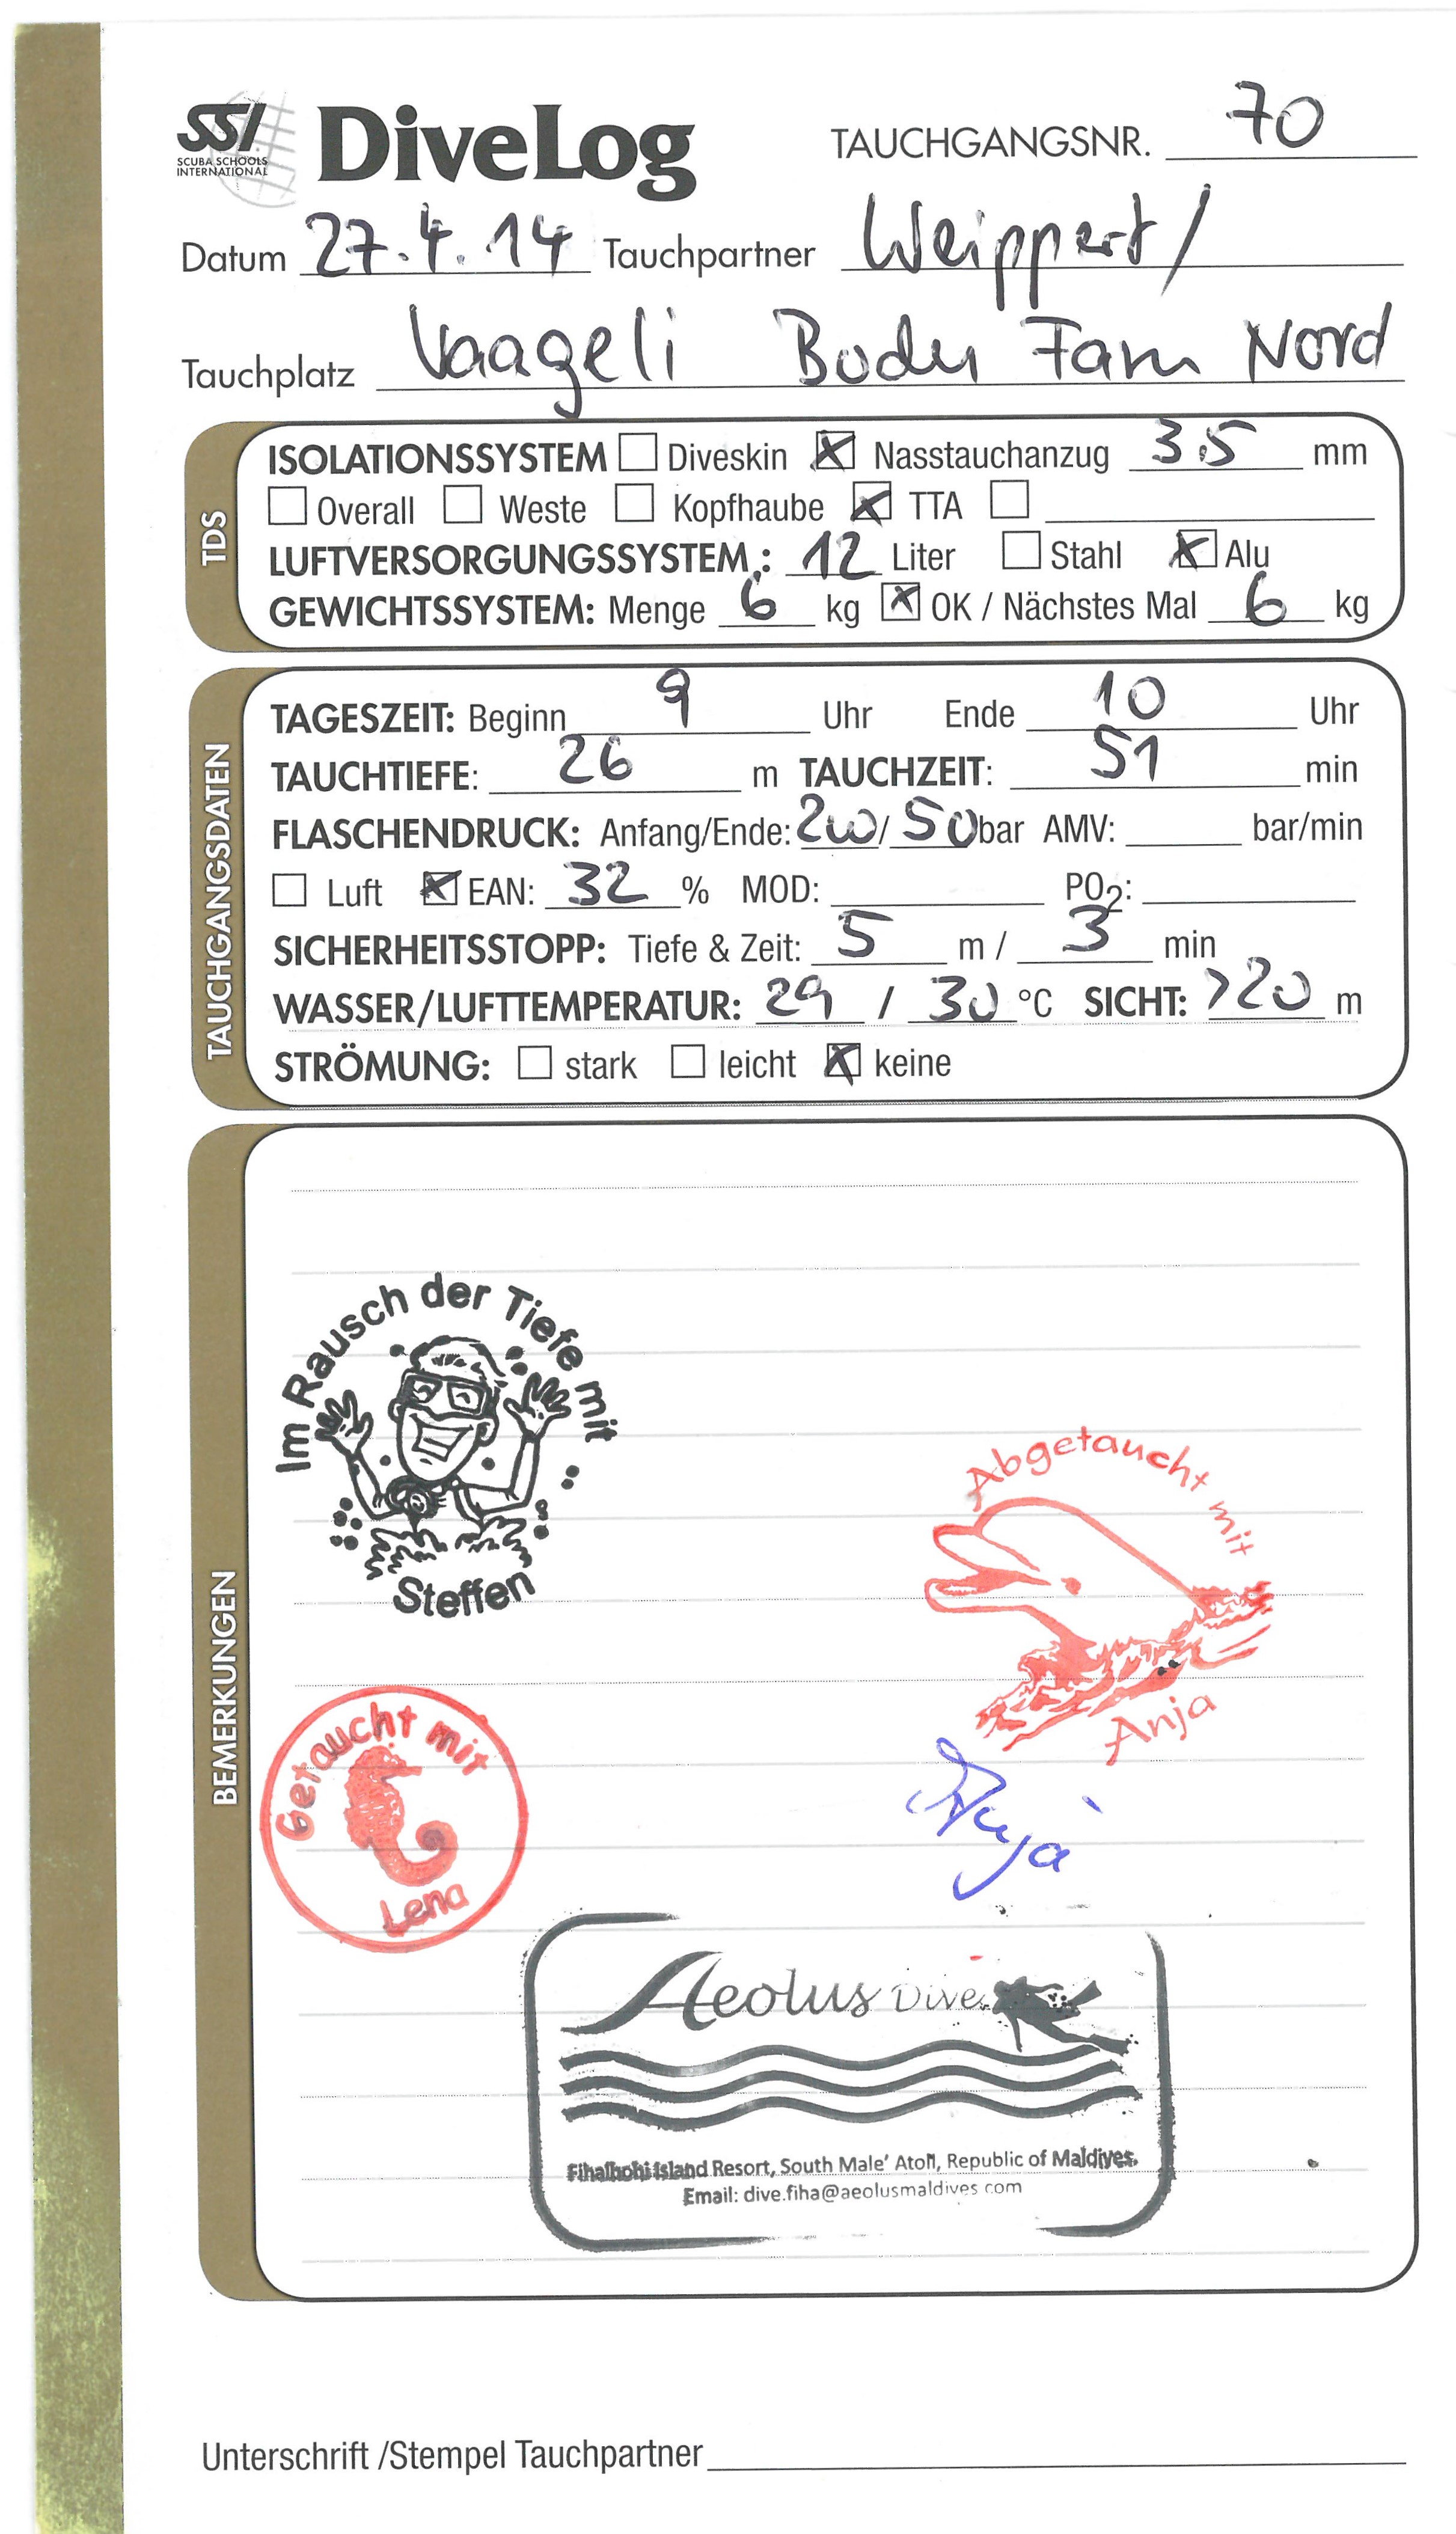 SSI DiveLog TAUCHGANGSNR. 70
SCUBA SCHOOLS
INTERNATIONAL
Datum 27.4.14 Tauchpartner Weippert/
Tauchplatz Vaageli Bodu Faru Nord
TDS
ISOLATIONSSYSTEM Diveskin Nasstauchanzug 3,5 mm
Overall Weste Kopfhaube TTA
LUFTVERSORGUNGSSYSTEM: 12 Liter Stahl Alu
GEWICHTSSYSTEM: Menge 6 kg OK / Nächstes Mal 6 kg
TAUCHGANGSDATEN
TAGESZEIT: Beginn 9 Uhr Ende 10 Uhr
TAUCHTIEFE: 26 m TAUCHZEIT: 51 min
FLASCHENDRUCK: Anfang/Ende: 200/50 bar AMV: bar/min
Luft EAN: 32 % MOD: PO2:
SICHERHEITSSTOPP: Tiefe & Zeit: 5 m / 3 min
WASSER/LUFTTEMPERATUR: 29 / 30 °C SICHT: >20 m
STRÖMUNG: stark leicht keine
BEMERKUNGEN
Im Rausch der Tiefe mit
Steffen
Abgetaucht mit
Anja
Getaucht mit
Lena
Anja
Aeolus Dive
Fihalhohi Island Resort, South Male' Atoll, Republic of Maldives.
Email: dive.fiha@aeolusmaldives.com
Unterschrift /Stempel Tauchpartner